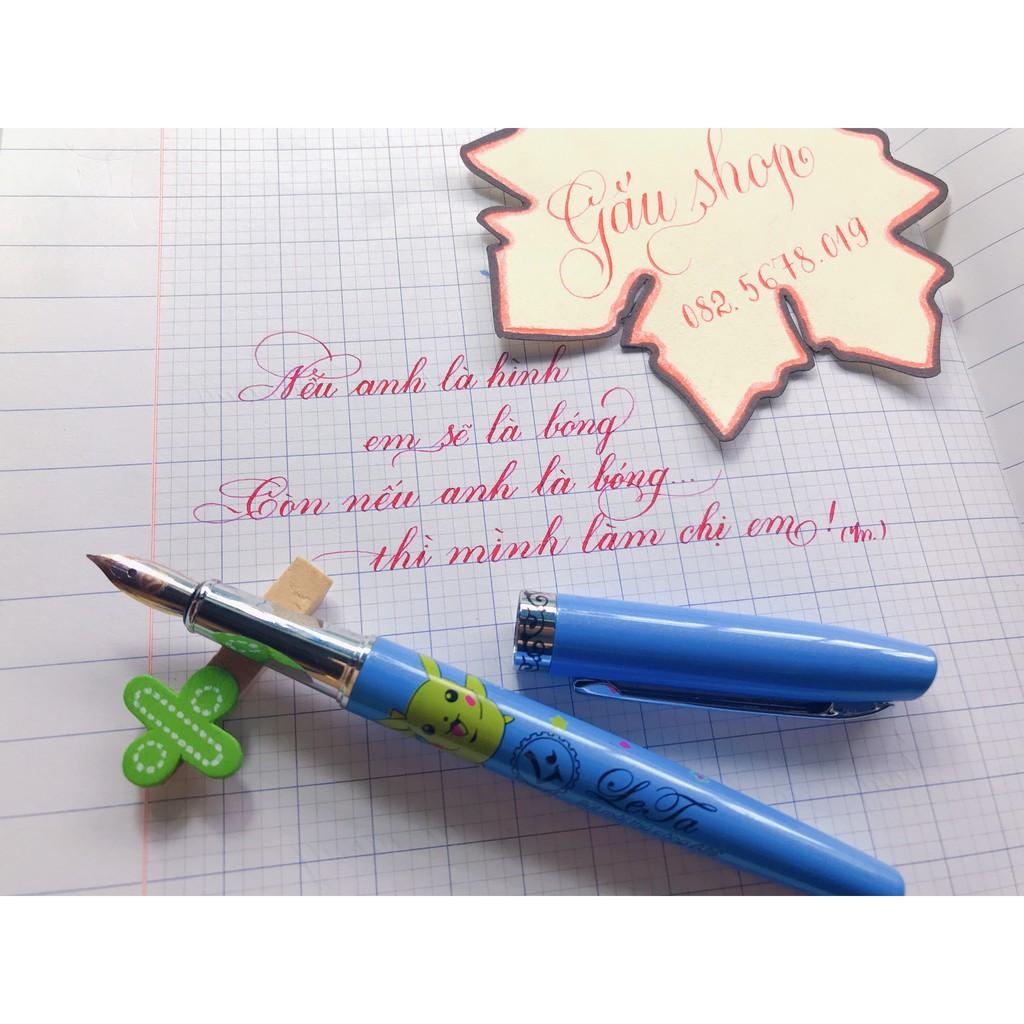 Gấu shop
082.5678.019
Nếu anh là hình
em sẽ là bóng
Còn nếu anh là bóng...
thì mình làm chị em! (Mn.)
LeTa